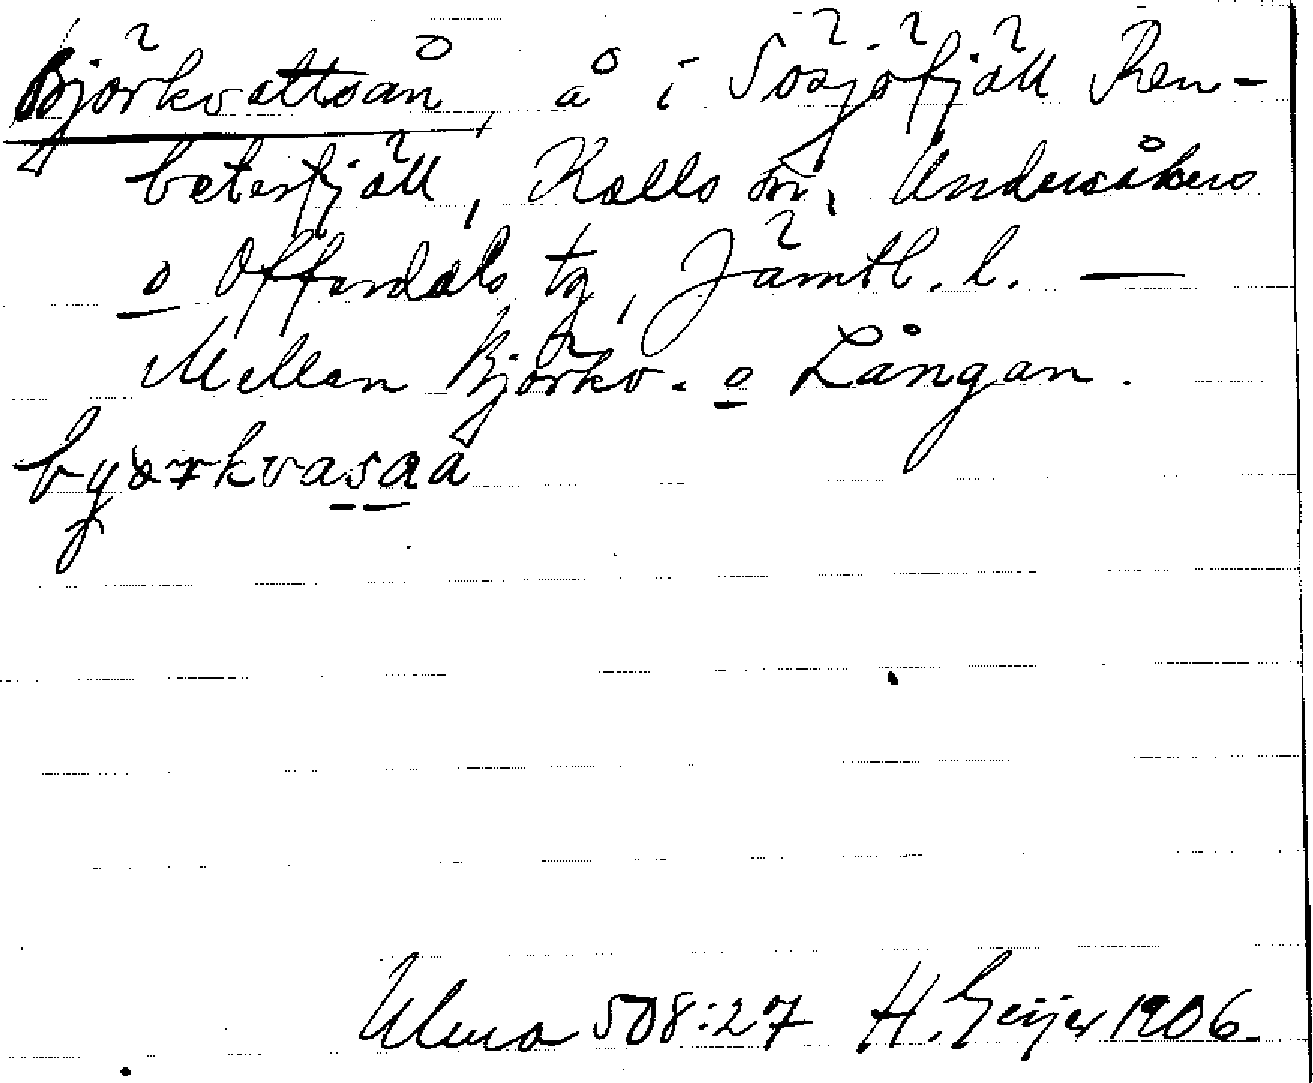 Björkvattsån, å i Sösjöfjäll Ren-
betesfjäll, Kalls sn, Undersåkers
o Offerdals tg, Jämtl. l. —
Mellan Björkv. o Långan.
byörkvasaå
Ulma 508:27 H. Geijer 1906.